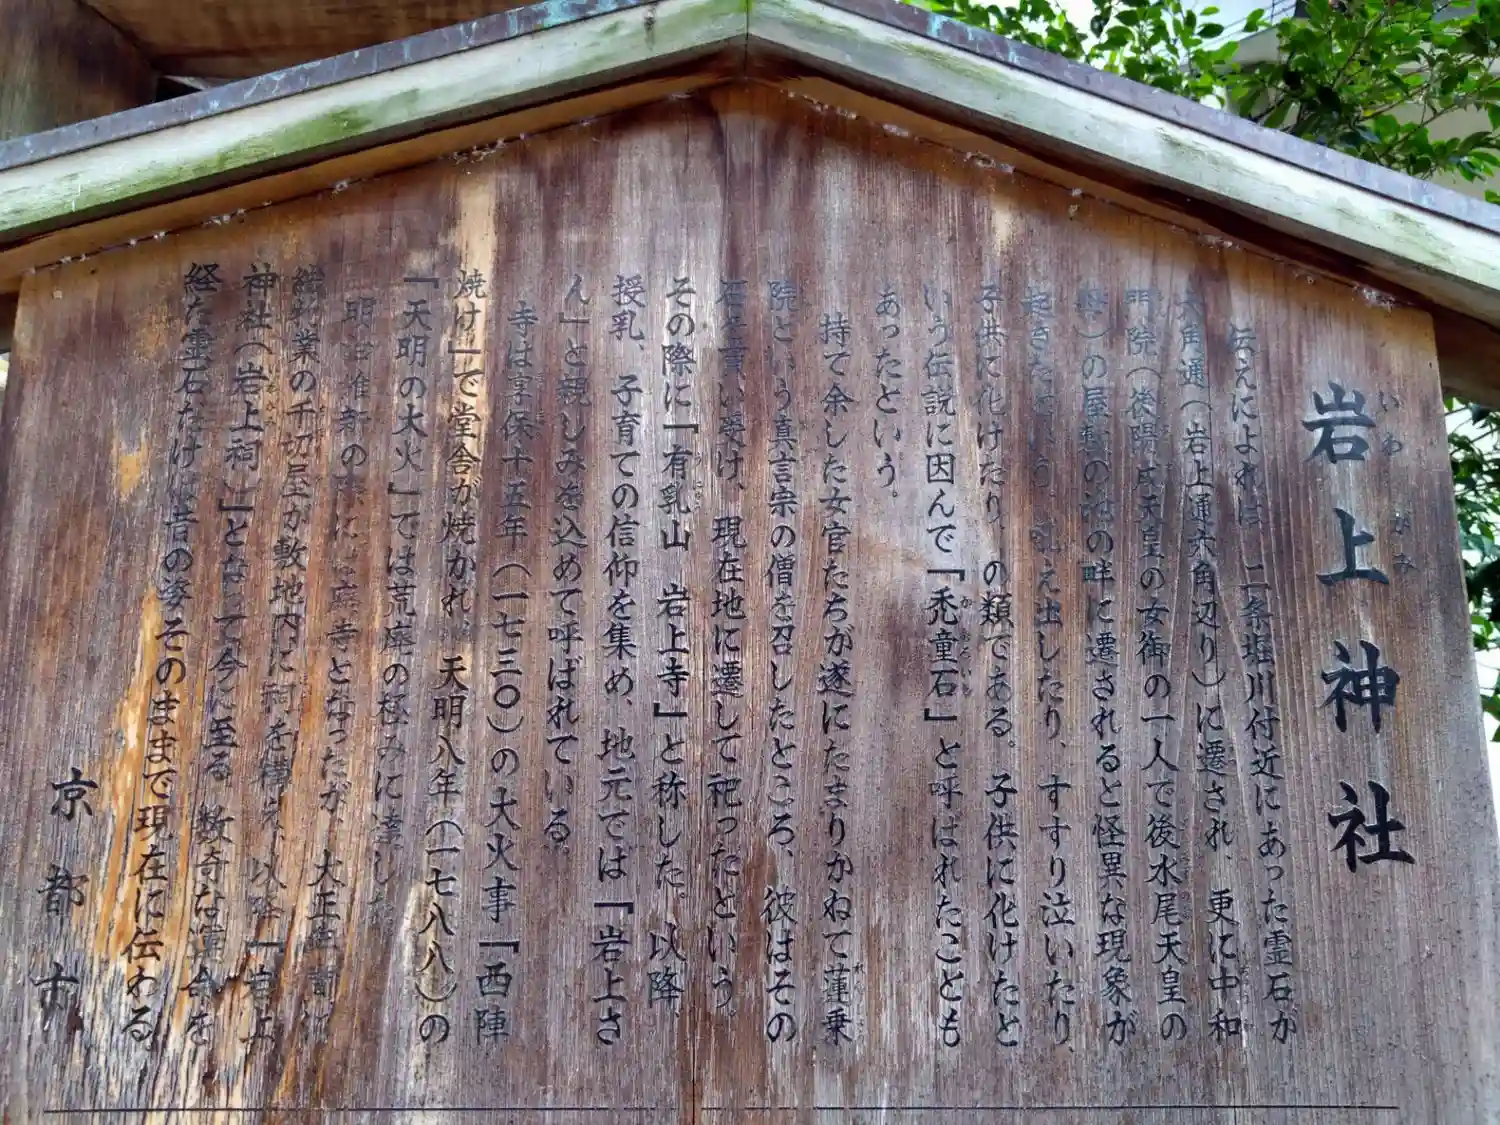 岩上神社
いわがみ
伝えによれば、二条堀川付近にあった霊石が
六角通(岩上通六角辺り)に遷され、更に中和
門院(後陽成天皇の女御の一人で後水尾天皇の
母)の屋敷の池の畔に遷されると怪異な現象が
起きたという。吼え出したり、すすり泣いたり、
子供に化けたり、の類である。子供に化けたと
いう伝説に因んで「禿童石」と呼ばれたことも
あったという。
持て余した女官たちが遂にたまりかねて蓮乗
院という真言宗の僧を召したところ、彼はその
石を貰い受け、現在地に遷して祀ったという。
その際に「有乳山 岩上寺」と称した。以降、
授乳、子育ての信仰を集め、地元では「岩上さ
ん」と親しみを込めて呼ばれている。
寺は享保十五年(一七三〇)の大火事「西陣
焼け」で堂舎が焼かれ、天明八年(一七八八)の
「天明の大火」では荒廃の極みに達した。
明治維新の際には廃寺となったが、大正年間に
織物業の千切屋が敷地内に祠を構え、以降「岩上
神社(岩上祠)」となって今に至る。数奇な運命を
経た霊石だけは昔の姿そのままで現在に伝わる。
京都市